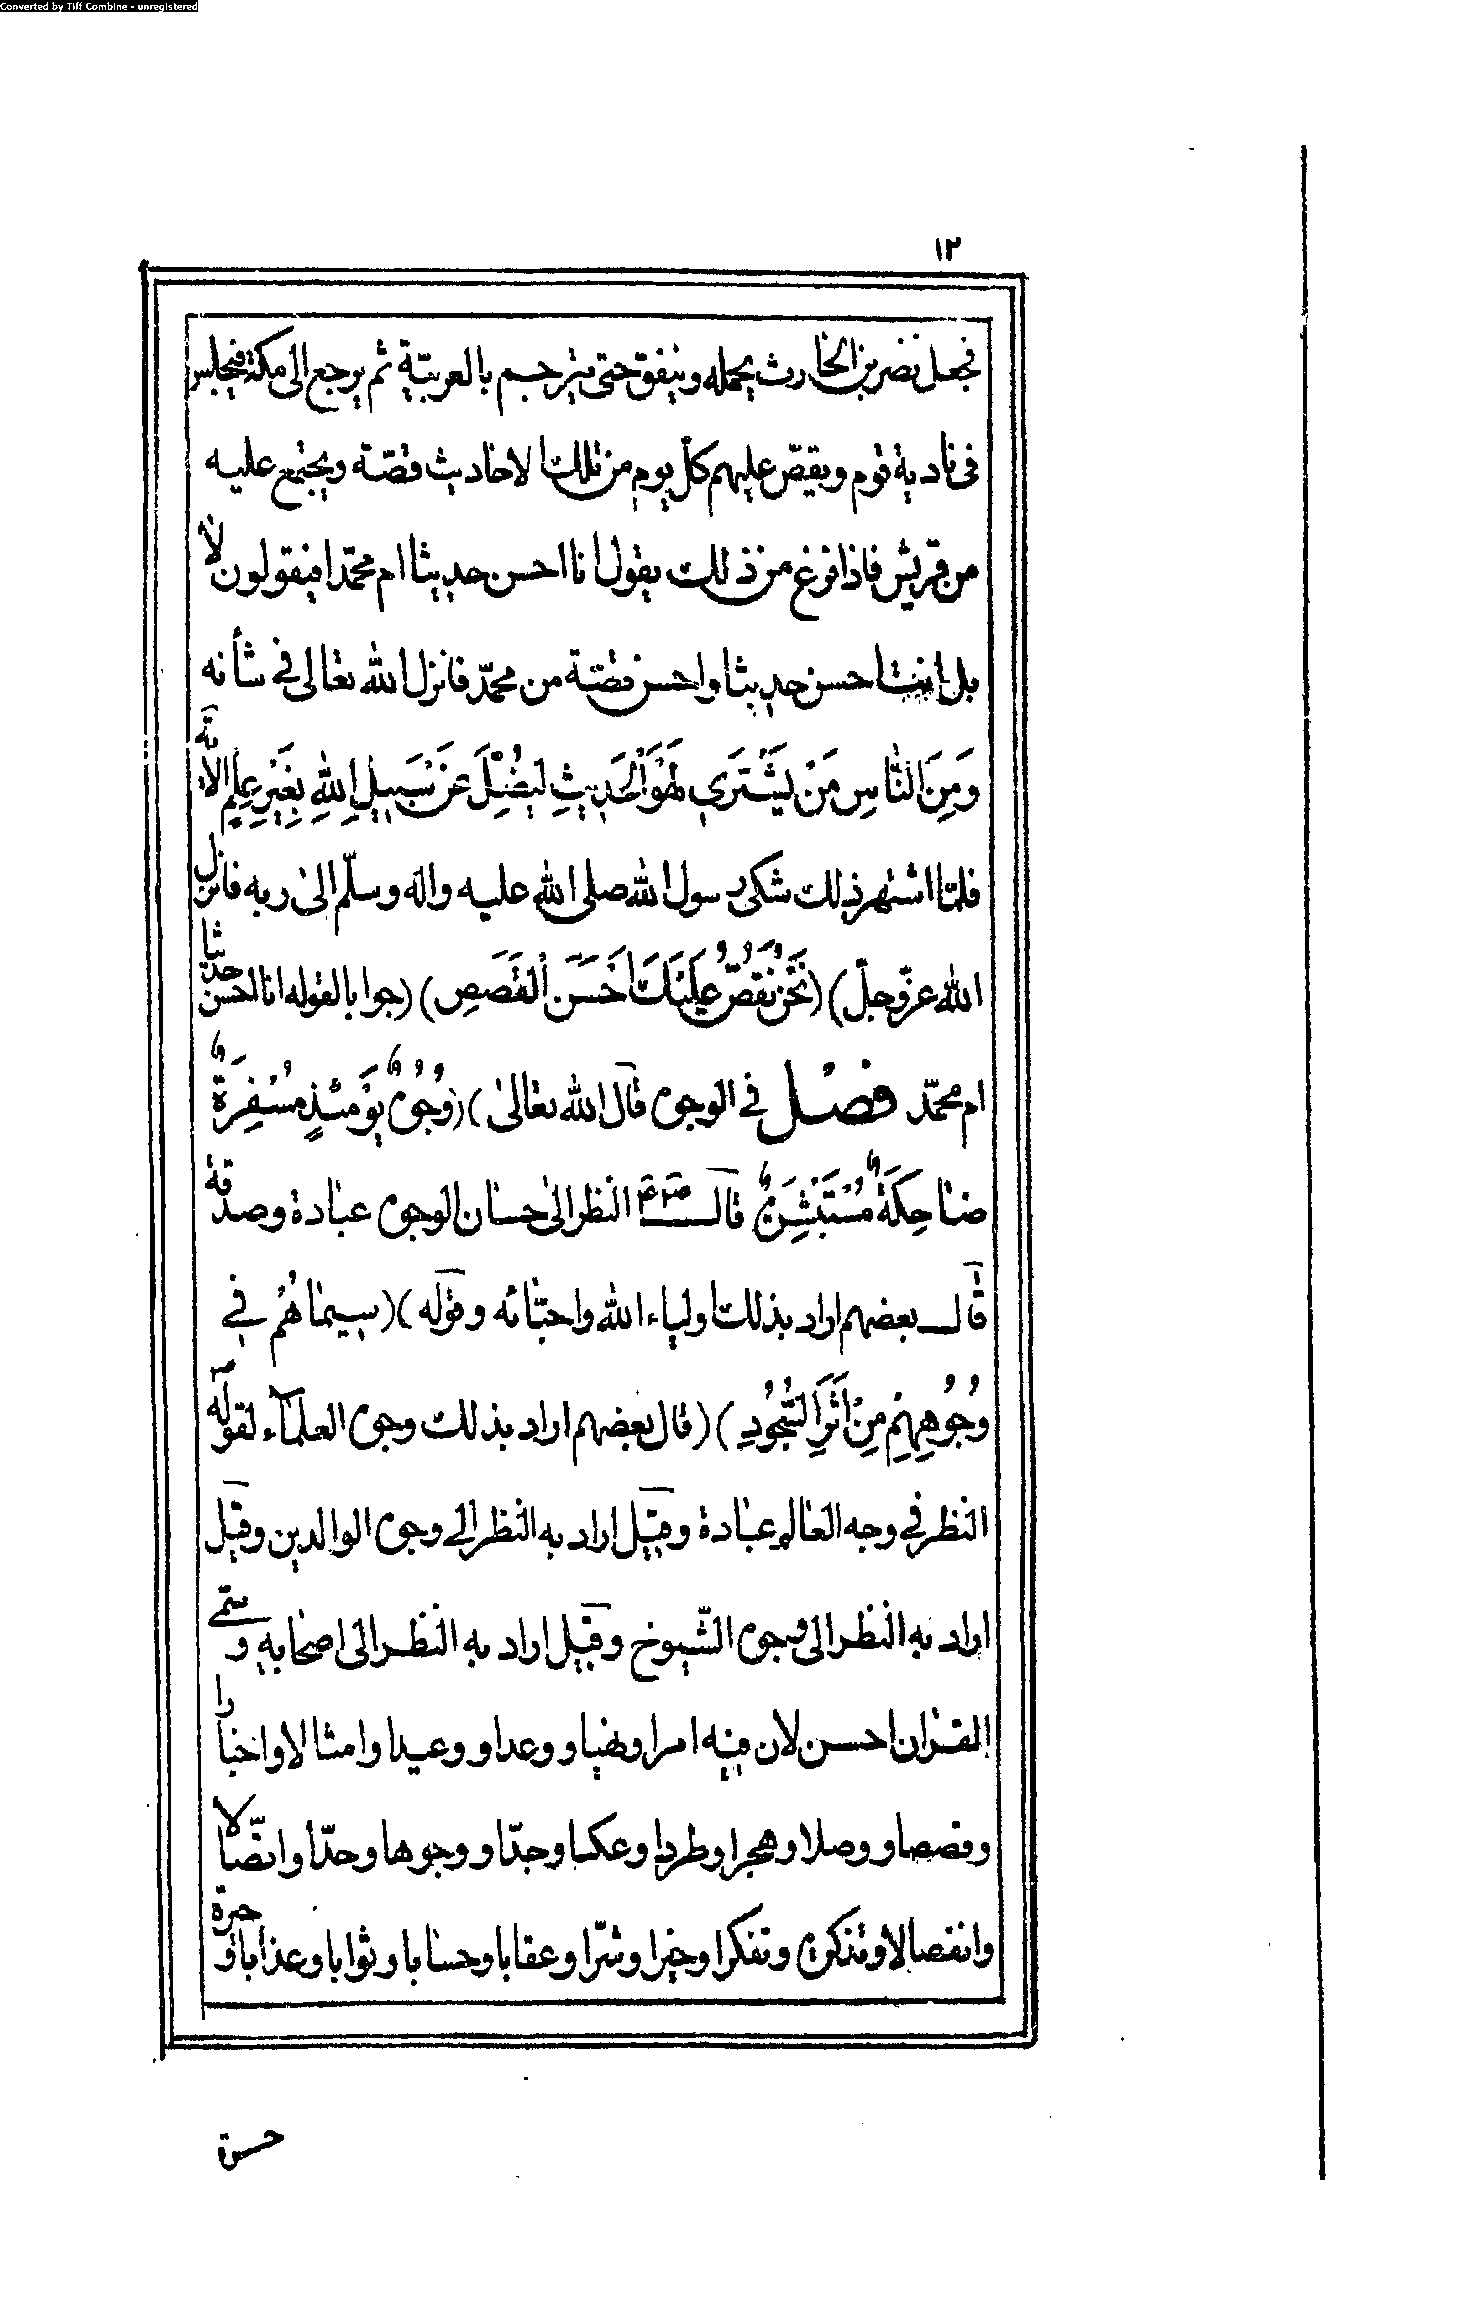 Converted by Tiff Combine - unregistered
١٢
فجعل نضر بن الحارث يحمله وينفق حتى يترجم بالعربيّة ثم يرجع الى مكة فيجلس
فى نادية قوم ويقصّ عليهم كلّ يوم من تلك الاحاديث قصّة ويجتمع عليه
من قريش فاذا فرغ من ذلك يقول انا احسن حديثا ام محمّد افيقولون لا
بل انت احسن حديثا واحسن قصّة من محمّد فانزل الله تعالى فى شأنه
وَمِنَ النَّاسِ مَنْ يَشْتَرِي لَهْوَ الْحَدِيثِ لِيُضِلَّ عَنْ سَبِيلِ اللهِ بِغَيْرِ عِلْمٍ الآية
فلمّا اشتهر ذلك شكى رسول الله صلى الله عليه واله وسلّم الى ربه فانزل
الله عزّوجلّ) (نَحْنُ نَقُصُّ عَلَيْكَ اَحْسَنَ الْقَصَصِ) (جوابا لقوله انا احسن حديثا
ام محمّد فصل فى الوجوه قال الله تعالى) (وُجُوهٌ يَوْمَئِذٍ مُسْفِرَةٌ
ضَاحِكَةٌ مُسْتَبْشِرَةٌ قال النظر الى حسان الوجوه عبادة وصدقة
قال بعضهم اراد بذلك اولياء الله واحبّائه وقوله) (سِيمَاهُمْ فِي
وُجُوهِهِمْ مِنْ اَثَرِ السُّجُودِ) (قال بعضهم اراد بذلك وجوه العلمآء لقوله
النظر فى وجه العالم عبادة وقيل اراد به النظر الى وجوه الوالدين وقيل
اراد به النظر الى وجوه الشّيوخ وقيل اراد به النظر الى اصحابه وسمّى
القران احسن لان فيه امرا ونهيا ووعدا ووعيدا وامثالا واخبارا
وقصصا ووصلا وهجرا وطردا وعكسا وجدّا ووجوها وحدّا واتّصالا
وانفصالا وتذكرة وتفكرا وخيرا وشرّا وعقابا وحسابا وثوابا وعذابا و
حسرة